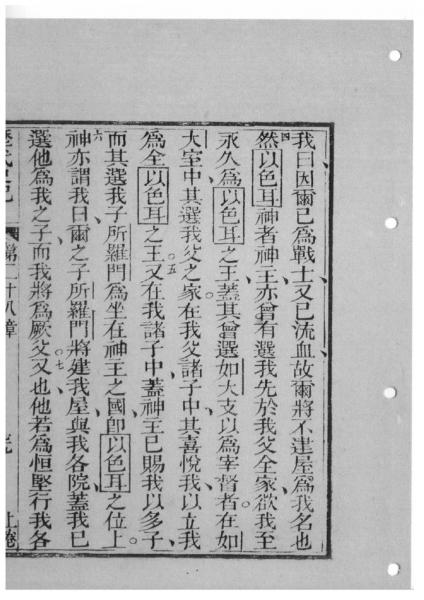 我曰因爾已為戰士又已流血故爾將不建屋為我名也
四然以色耳神者神王亦曾有選我先於我父全家欲我至
永久為以色耳之王蓋其曾選如大支以為宰督者在如
大室中其選我父之家在我父諸子中其喜悅我以立我
為全以色耳之王五又在我諸子中蓋神王已賜我以多子
而其選我子所羅門為坐在神王之國即以色耳之位上
六神亦謂我曰爾之子所羅門將建我屋與我各院蓋我已
選他為我之子而我將為厥父七又也他若為恒堅行我各
第二十八章